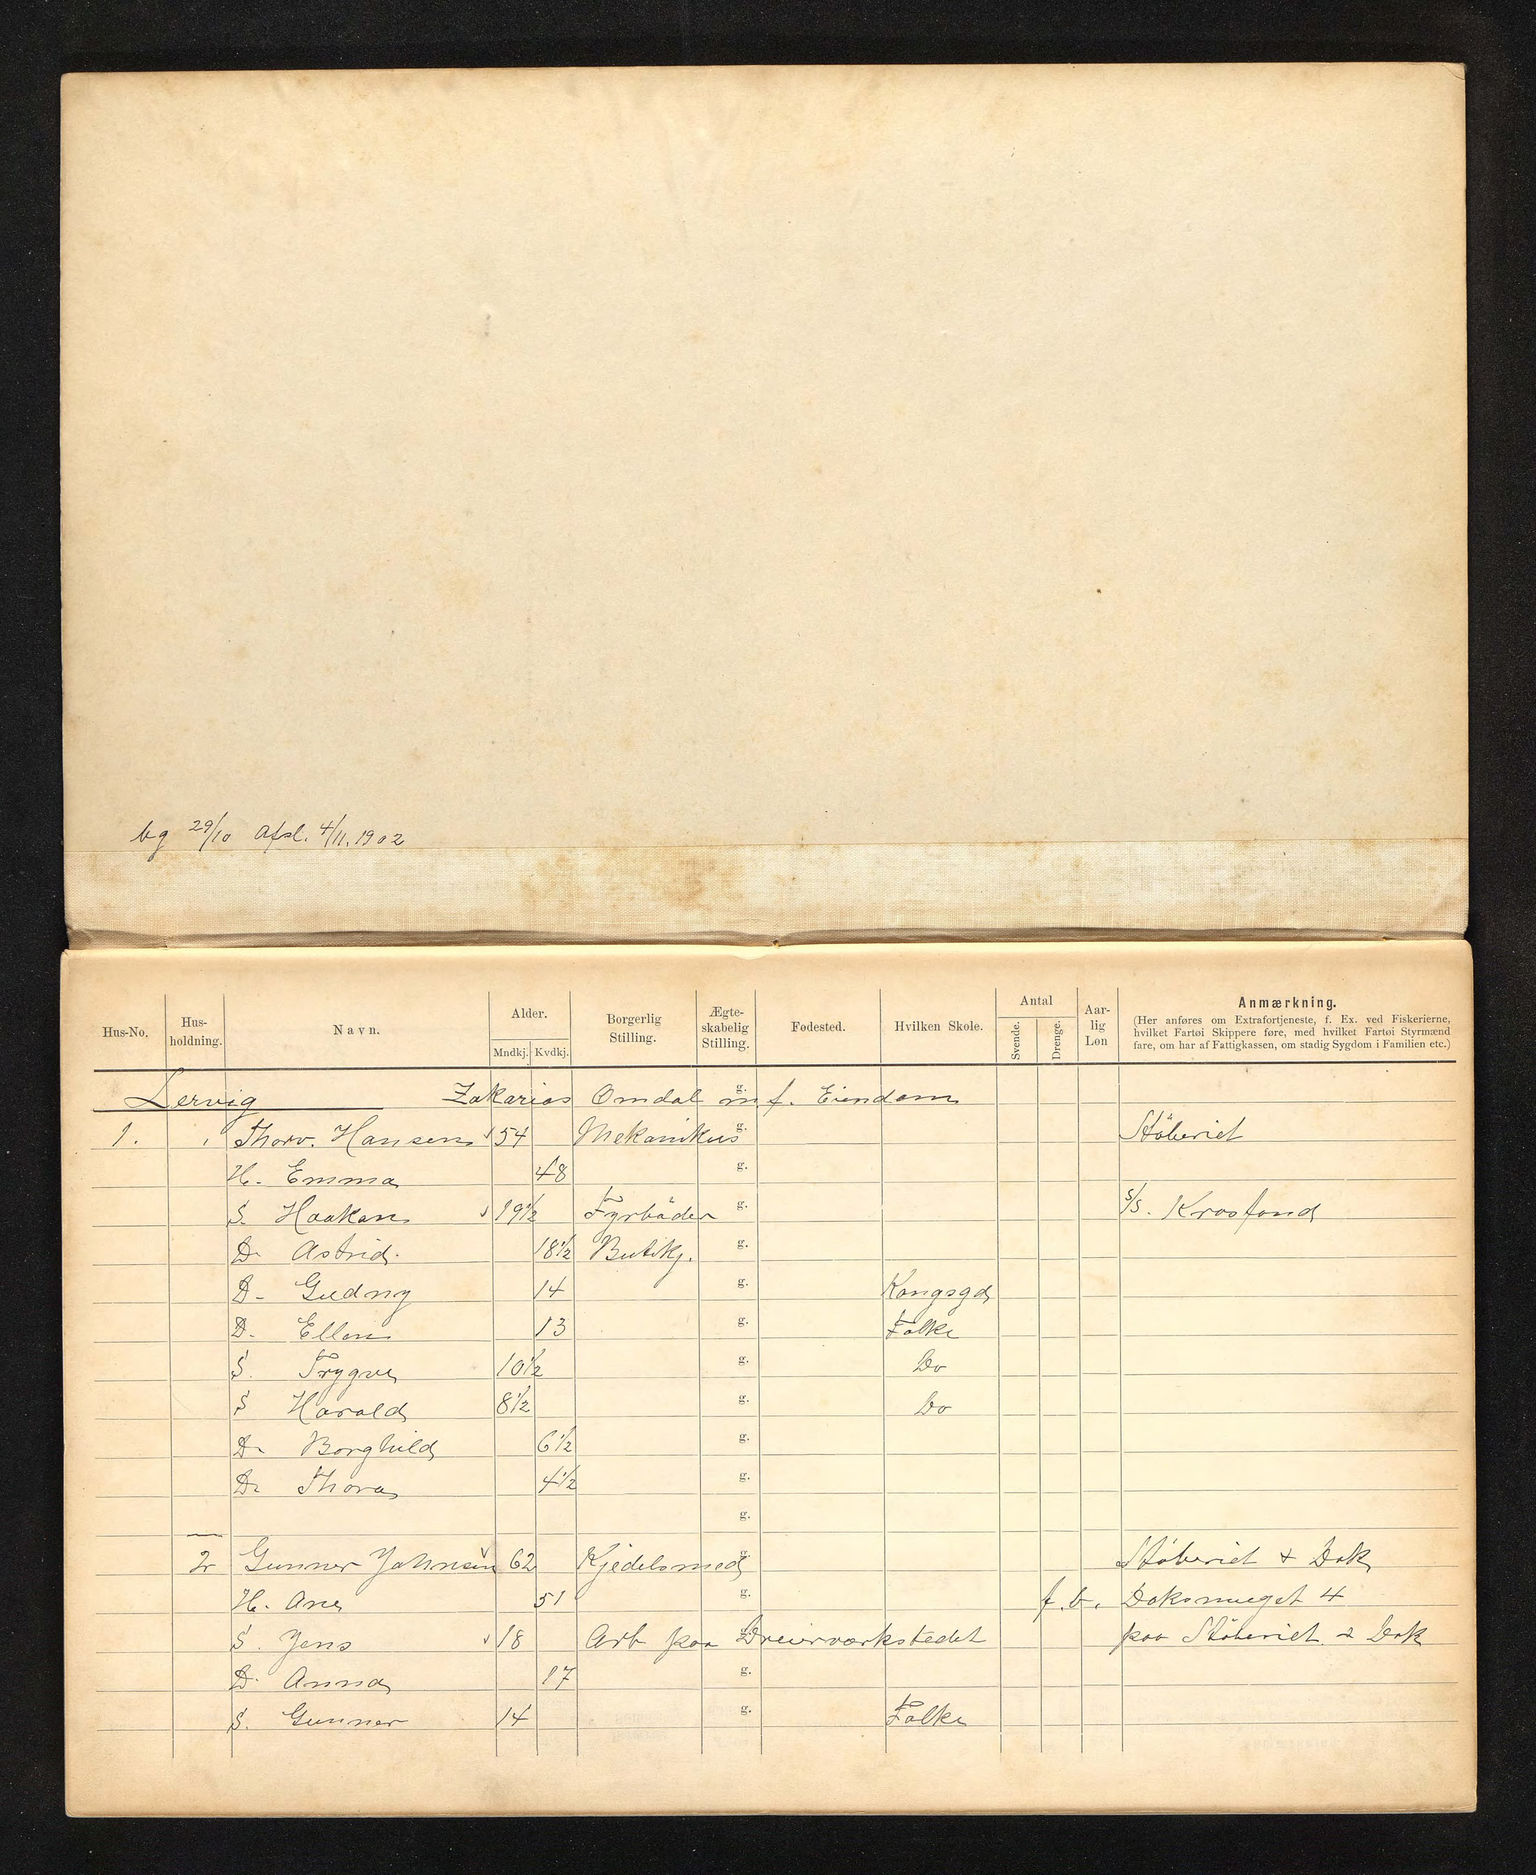 bg 29/10 Afsl. 4/11. 1902
Hus-No. Hus-holdning. Navn. Alder. Mndkj. Kvdkj. Borgerlig Stilling. Ægte-skabelig Stilling. Fødested. Hvilken Skole. Antal Svende. Drenge. Aar-lig Løn Anmærkning.
(Her anføres om Extrafortjeneste, f. Ex. ved Fiskerierne,
hvilket Fartøi Skippere føre, med hvilket Fartøi Styrmænd
fare, om har af Fattigkassen, om stadig Sygdom i Familien etc.)
Lervig Zakarias Omdal m. f. Eiendom g.
1. Thorv. Hansen 54 Mekanikus g. Støberiet
H. Emma 48 g.
S. Haakon 19½ Fyrbøder g. S/S. Krosfond
D. Astrid. 18½ Butikj. g.
D. Gudny 14 g. Kongsgd
D. Ellen 13 g. Folke
S. Trygve 10½ g. Do
S Harald 8½ g. Do
D. Borghild 6½ g.
D. Thora 4½ g.
g.
2 Gunner Johnsen 62 Kjedelsmed g. Støberiet & Dok
H. Ane 51 g. f. b. Doksmuget 4
S. Jens 18 Arb paa Dreierværkstedet g. paa Støberiet & Dok
D. Anna 17 g.
S. Gunner 14 g. Folke